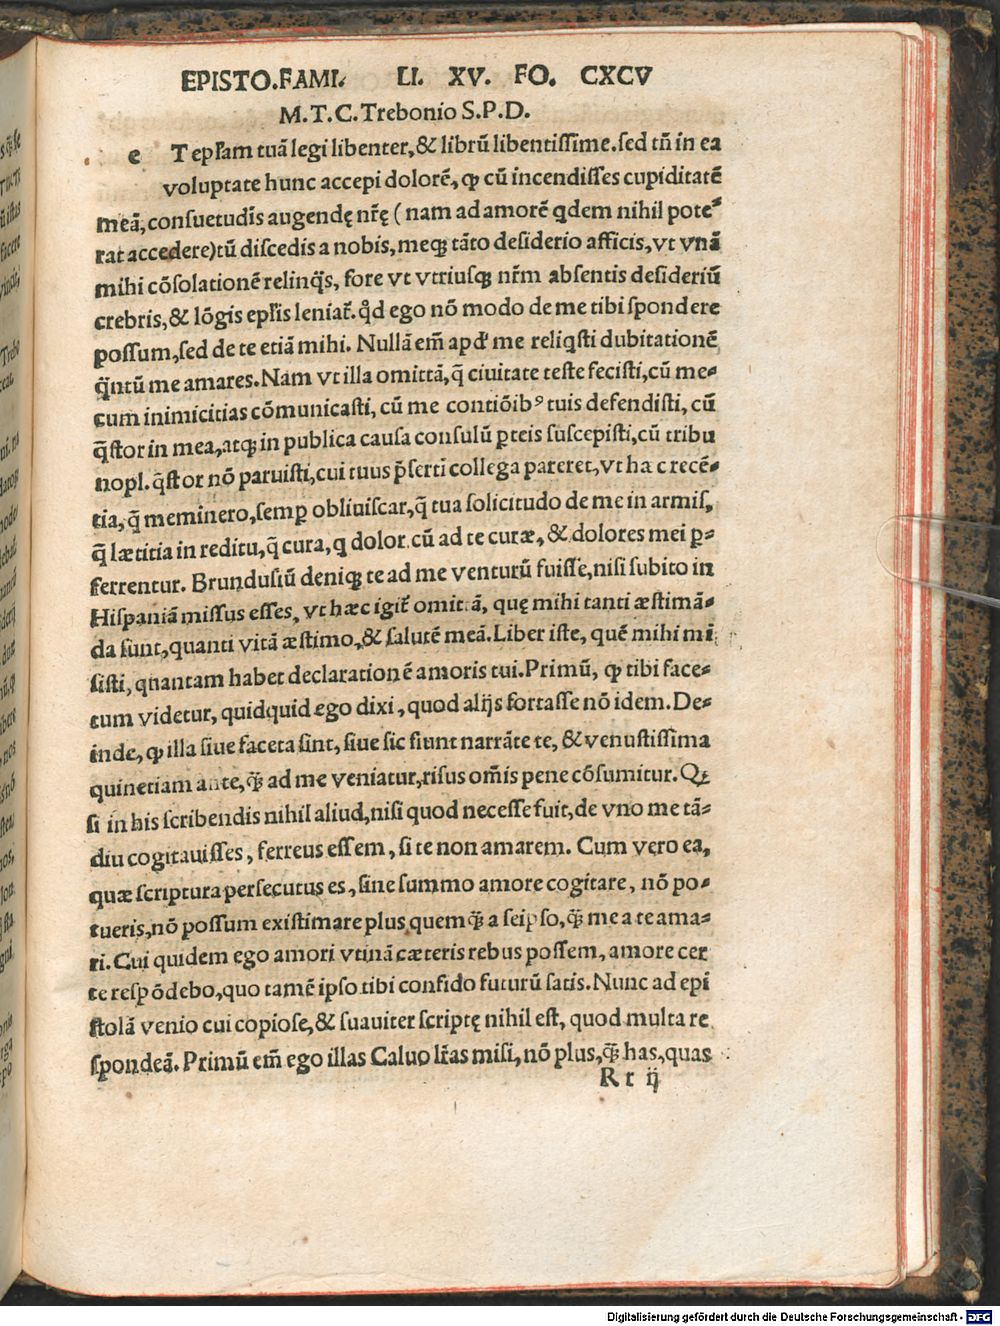 EPISTO.FAMI. LI. XV. FO. CXCV
M.T.C.Trebonio S.P.D.
e T epłam tuã legi libenter,& librũ libentissime.sed tñ in ea
voluptate hunc accepi dolorẽ, ꝙ cũ incendisses cupiditatẽ
meã, consuetudĩs augendę nr̃ę ( nam ad amorẽ qdem nihil pote⸗
rat accedere)tũ discedis a nobis, meqꝫ tãto desiderio afficis, vt vnã
mihi cõsolationẽ relinq̃s, fore vt vtriusqꝫ nr̃m absentis desideriũ
crebris,& lõgis epłis leniat̃. qđ ego nõ modo de me tibi spondere
possum, sed de te etiã mihi. Nullã em̃ apđ me reliqsti dubitationẽ
q̃ntũ me amares.Nam vt illa omittã, q̃ ciuitate teste fecisti, cũ me⸗
cum inimicitias cõmunicasti, cũ me contiõibꝰ tuis defendisti, cũ
q̃stor in mea, atqꝫ in publica causa consulũ ꝑteis suscepisti, cũ tribu
nopl. q̃stor nõ paruisti, cui tuus p̃serti collega pareret, vt ha c recẽ⸗
tia, q̃ meminero, semꝑ obliuiscar, q̃ tua solicitudo de me in armis,
q̃ lætitia in reditu, q̃ cura, q dolor cũ ad te curæ, & dolores mei ꝑ⸗
ferrentur. Brundusiũ deniqꝫ te ad me venturũ fuisse, nisi subito in
Hispaniã missus esses, vt hæc igit̃ omittã, quę mihi tanti æstimã⸗
da sunt, quanti vitã æstimo, & salutẽ meã. Liber iste, quẽ mihi mi
sisti, quantam habet declarationẽ amoris tui. Primũ, ꝙ tibi face⸗
tum videtur, quidquid ego dixi, quod alijs fortasse nõ idem. De⸗
inde, ꝙ illa siue faceta sint, siue sic fiunt narrãte te, & venustissima
quinetiam ante, q̃ꝫ ad me veniatur, risus om̃is pene cõsumitur. Qꝫ
si in his scribendis nihil aliud, nisi quod necesse fuit, de vno me tã⸗
diu cogitauisses, ferreus essem, si te non amarem. Cum vero ea,
quæ scriptura persecutus es, sine summo amore cogitare, nõ po⸗
tueris, nõ possum existimare plus quemq̃ꝫ a seipso, q̃ꝫ me a te ama⸗
ri. Cui quidem ego amori vtinã cæteris rebus possem, amore cer
te respõdebo, quo tamẽ ipso tibi confido futurũ satis. Nunc ad epi
stolã venio cui copiose, & suauiter scriptę nihil est, quod multa re
spondeã. Primũ em̃ ego illas Caluo lr̃as misi, nõ plus, q̃ꝫ has, quas
R r ij
Digitalisierung gefördert durch die Deutsche Forschungsgemeinschaft - DFG